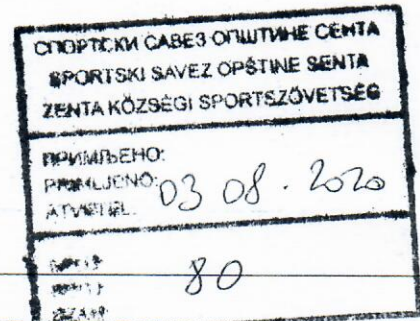 СПОРТСКИ САВЕЗ ОПШТИНЕ СЕНТА
SPORTSKI SAVEZ OPŠTINE SENTA
ZENTA KÖZSÉGI SPORTSZÖVETSÉG
ПРИМЉЕНО:
PRIMLJENO: 03 08. 2020
80